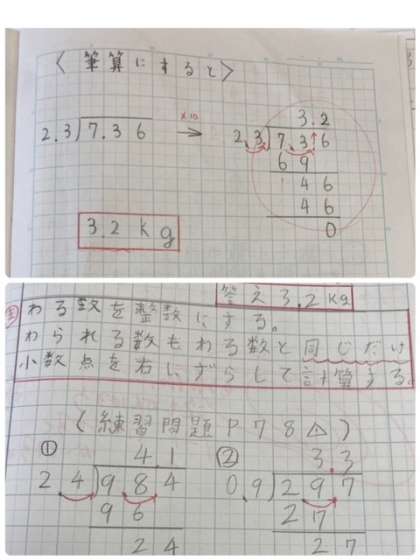 〈筆算にすると〉
3.2
2.3)7.36 ×10→ 2.3)7.36
69
46
46
0
3.2kg
答え3.2kg
わる数を整数にする。
わられる数もわる数と同じだけ
小数点を右にずらして計算する。
〈練習問題P78△〉
① 4.1 ② 3.3
2.4)984 0.9)297
96 27
24 27